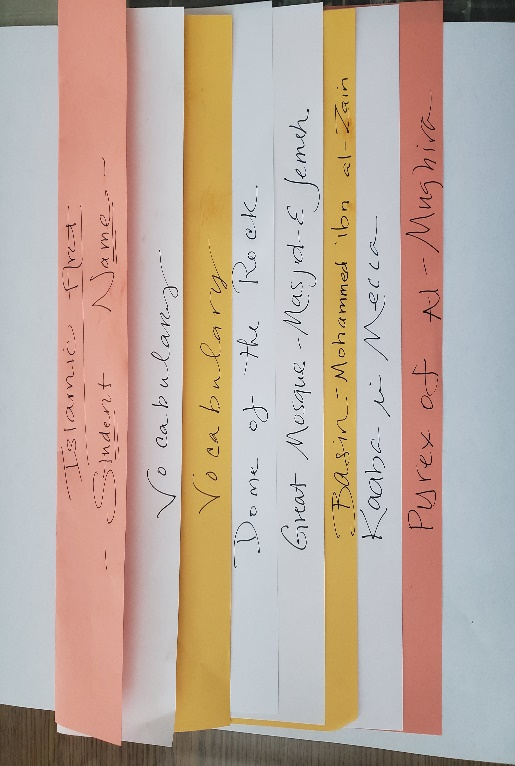 Islamic Art
- Student Name -
Vocabulary
Vocabulary
Dome of the Rock
Great Mosque - Masjd-E Jameh.
Basin - Mohammed ibn al-Zain
Kaaba in Mecca
Pyrex of Al-Mughira